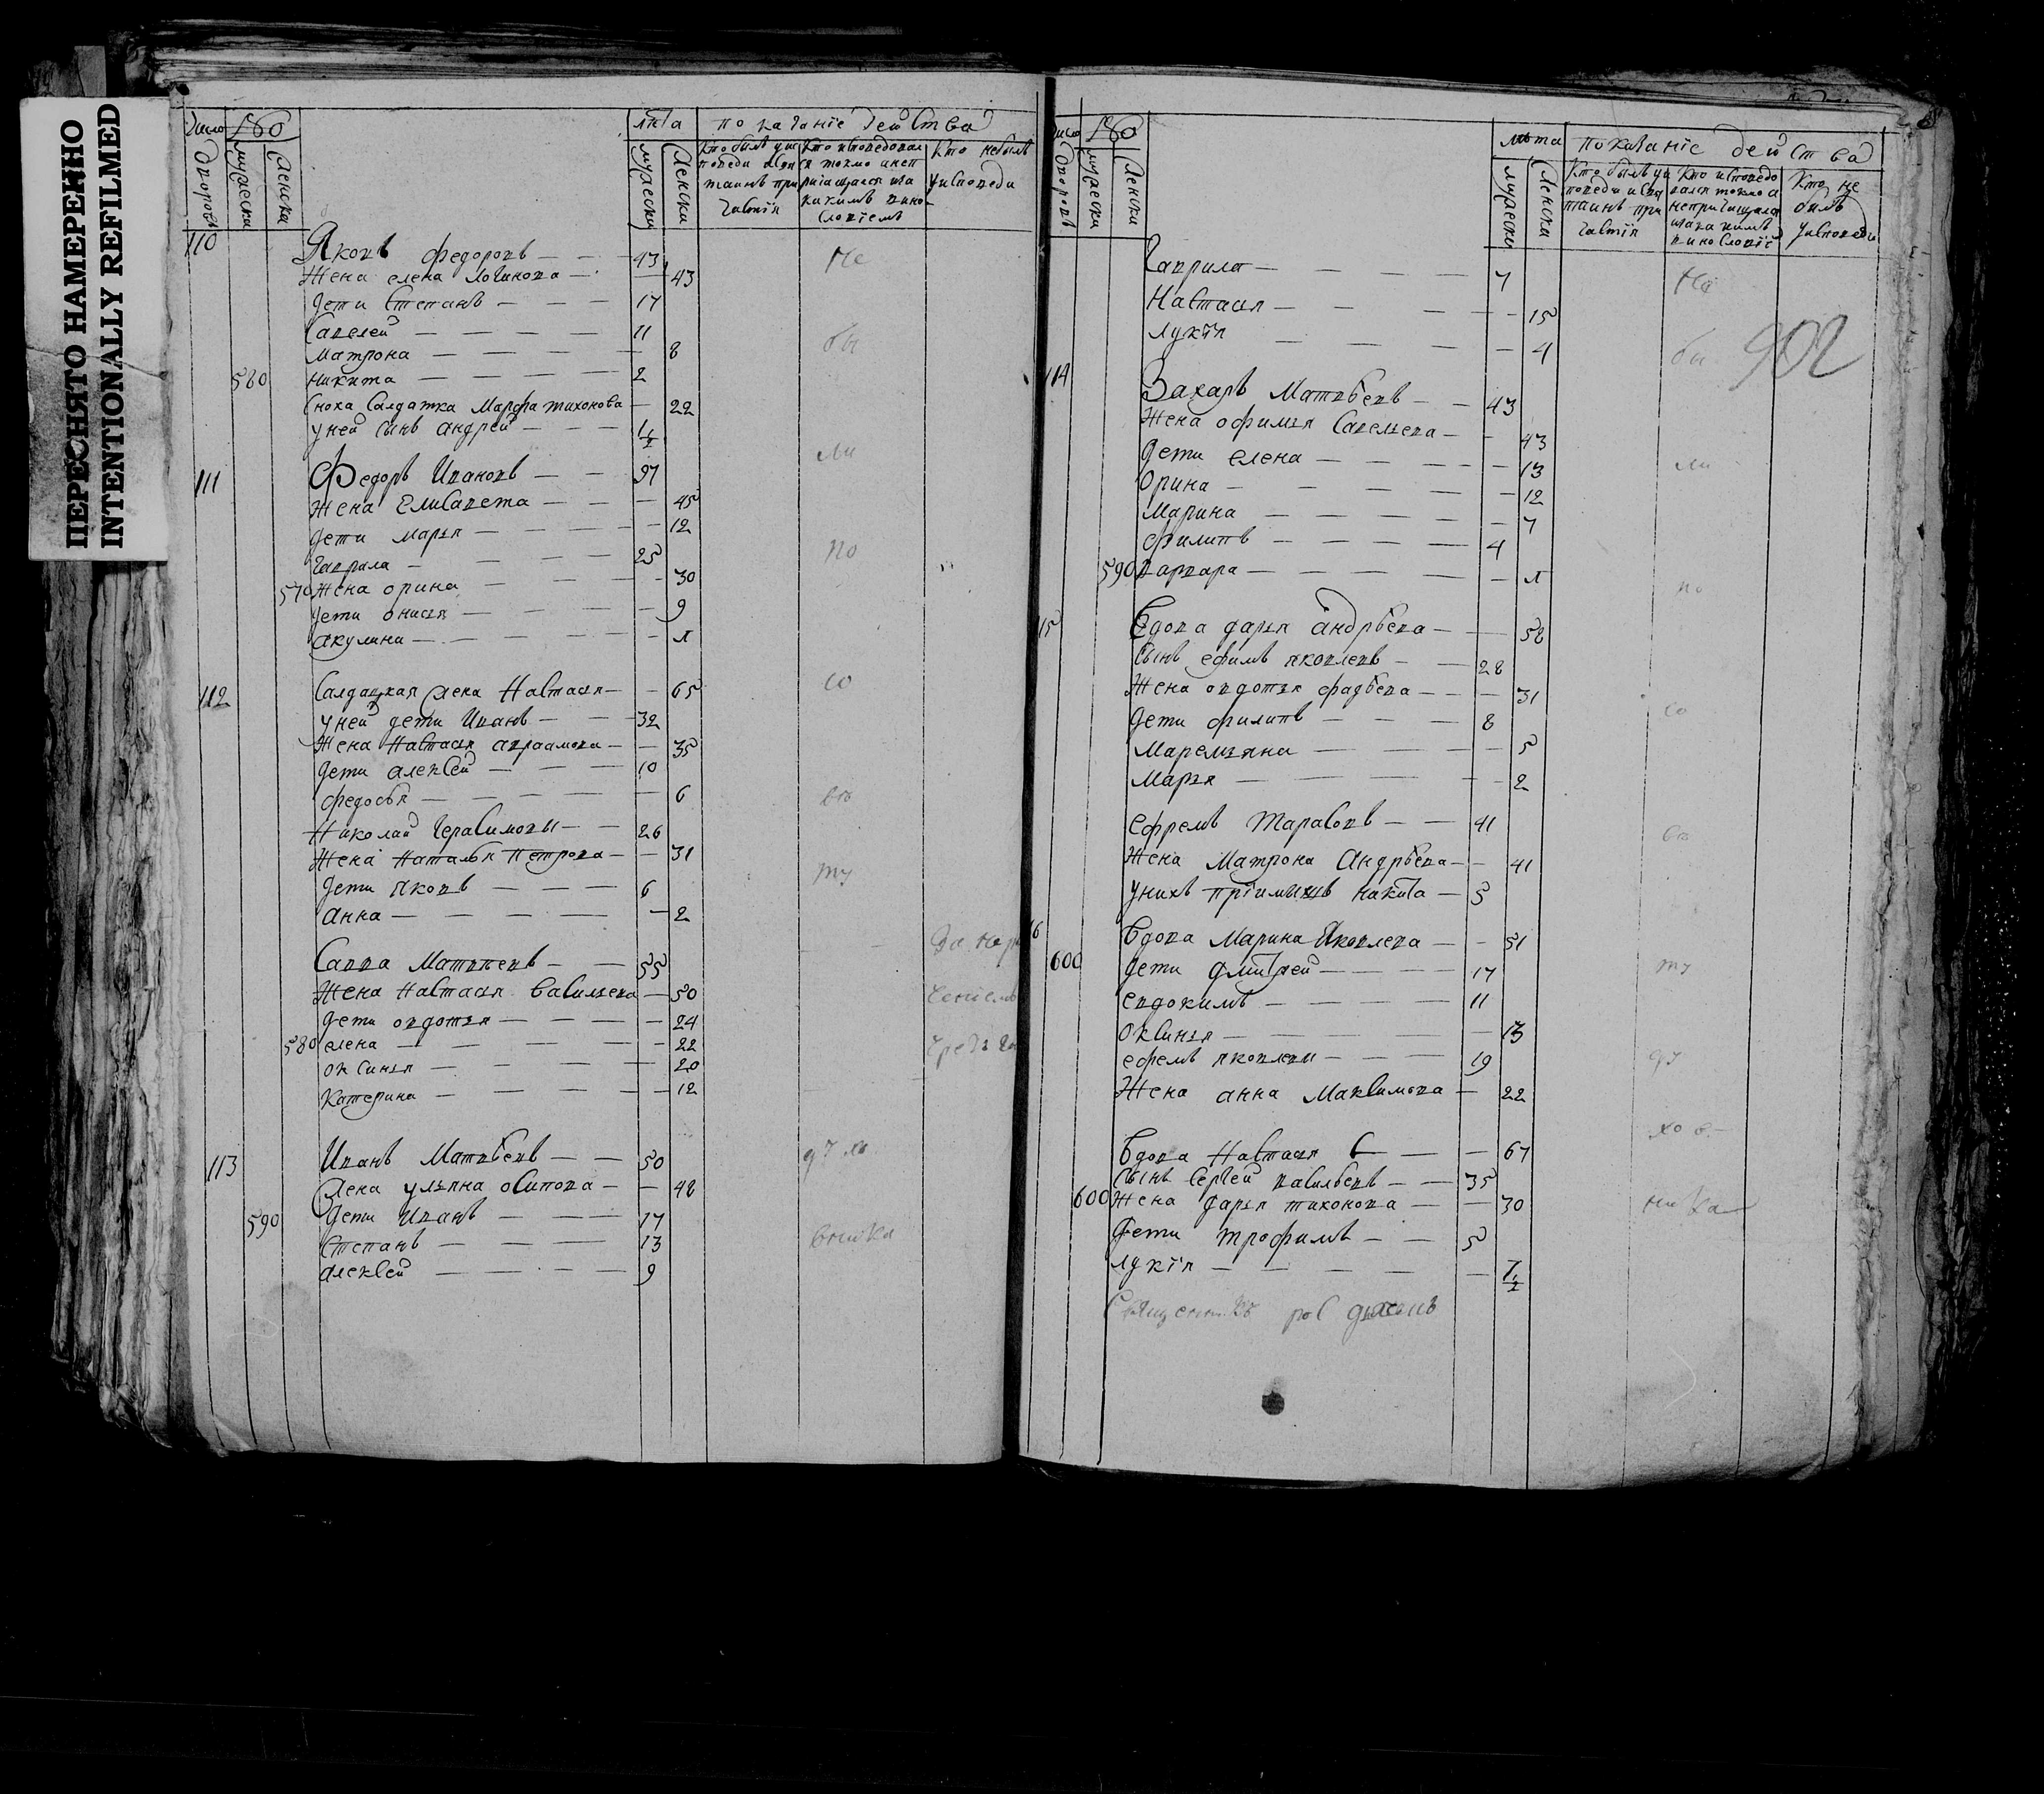 ПЕРЕСНЯТО НАМЕРЕННО
INTENTIONALLY REFILMED
число дворовъ
мужеска
женска
лѣта
показаніе действа
мужеска
женска
Кто былъ у исповеди и святых таинъ причастія
Кто исповедовался токмо а не причащался и за какимъ винословіемъ
Кто не былъ у исповеди
110
Яковъ Федоровъ — — — 43
Жена елена логинова — — 43
дети Степанъ — — — 17
Савелей — — — — 11
матрона — — — — 8
560 никита — — — — 2
Сноха Салдатка Марфа тихонова — 22
у ней Сынъ андрей — — — 1/2
111 Федоръ Ивановъ — — 97
Жена Елисавета — — — 45
дети марья — — — — 12
гаврила — — — — 25
570 Жена орина — — — — 30
дети онисья — — — — 9
акулина — — — — — 1
112 Салдацкая жена Настасья — — 65
у ней дети Иванъ — — 32
Жена Настасья авраамова — — 35
дети алексей — — — 10
федосья — — — — — 6
Николай Герасимовъ — — 26
Жена Наталья Петрова — — 31
дети яковъ — — — 6
анна — — — — — 2
Савва Матвеевъ — — 55
Жена Настасья Васильева — 50
дети овдотья — — — — 24
580 елена — — — — — 22
оксинья — — — — 20
Катерина — — — — — 12
113 Иванъ Матвѣевъ — — 50
Жена ульяна осипова — — 48
590 дети Иванъ — — — 17
Степанъ — — — — 13
алексей — — — — 9
не
бы
ли
по
со
ву
ту
число дворовъ
мужеска
женска
лѣта
показаніе действа
мужеска
женска
Кто былъ у исповеди и святых таинъ причастія
Кто исповедовался токмо а не причащался и за какимъ винословіе
Кто не былъ у исповеди
902
Гаврила — — — — 7
Настасья — — — — 15
лукія — — — — 4
114 Захаръ Матвѣевъ — — 43
Жена офимья Савельева — — 43
дети елена — — — — 13
Орина — — — — — 12
Марина — — — — — 7
филипъ — — — — 4
590 варвара — — — — — 1
15 Вдова дарья андрѣева — — 58
Сынъ ефимъ яковлевъ — — 28
Жена овдотья фадѣева — — — 31
дети филипъ — — — 8
Маремьяна — — — — 5
Марья — — — — 2
ефремъ Тарасовъ — — 41
Жена Матрона Андрѣева — — 41
у нихъ пріимышъ никита — 5
16 Вдова Марина Яковлева — — 51
600 дети дмитрей — — — — 17
евдокимъ — — — — 11
Оксинья — — — — — 13
ефемъ яковлевъ — — — 19
Жена анна Максимова — 22
Вдова Настасья — — — 67
Сынъ Сергей васильевъ — — 35
600 Жена дарья тихонова — — 30
дети трофимъ — — 5
лукія — — — — — 1/2
не
бы
ли
по
со
ву
ту
ду